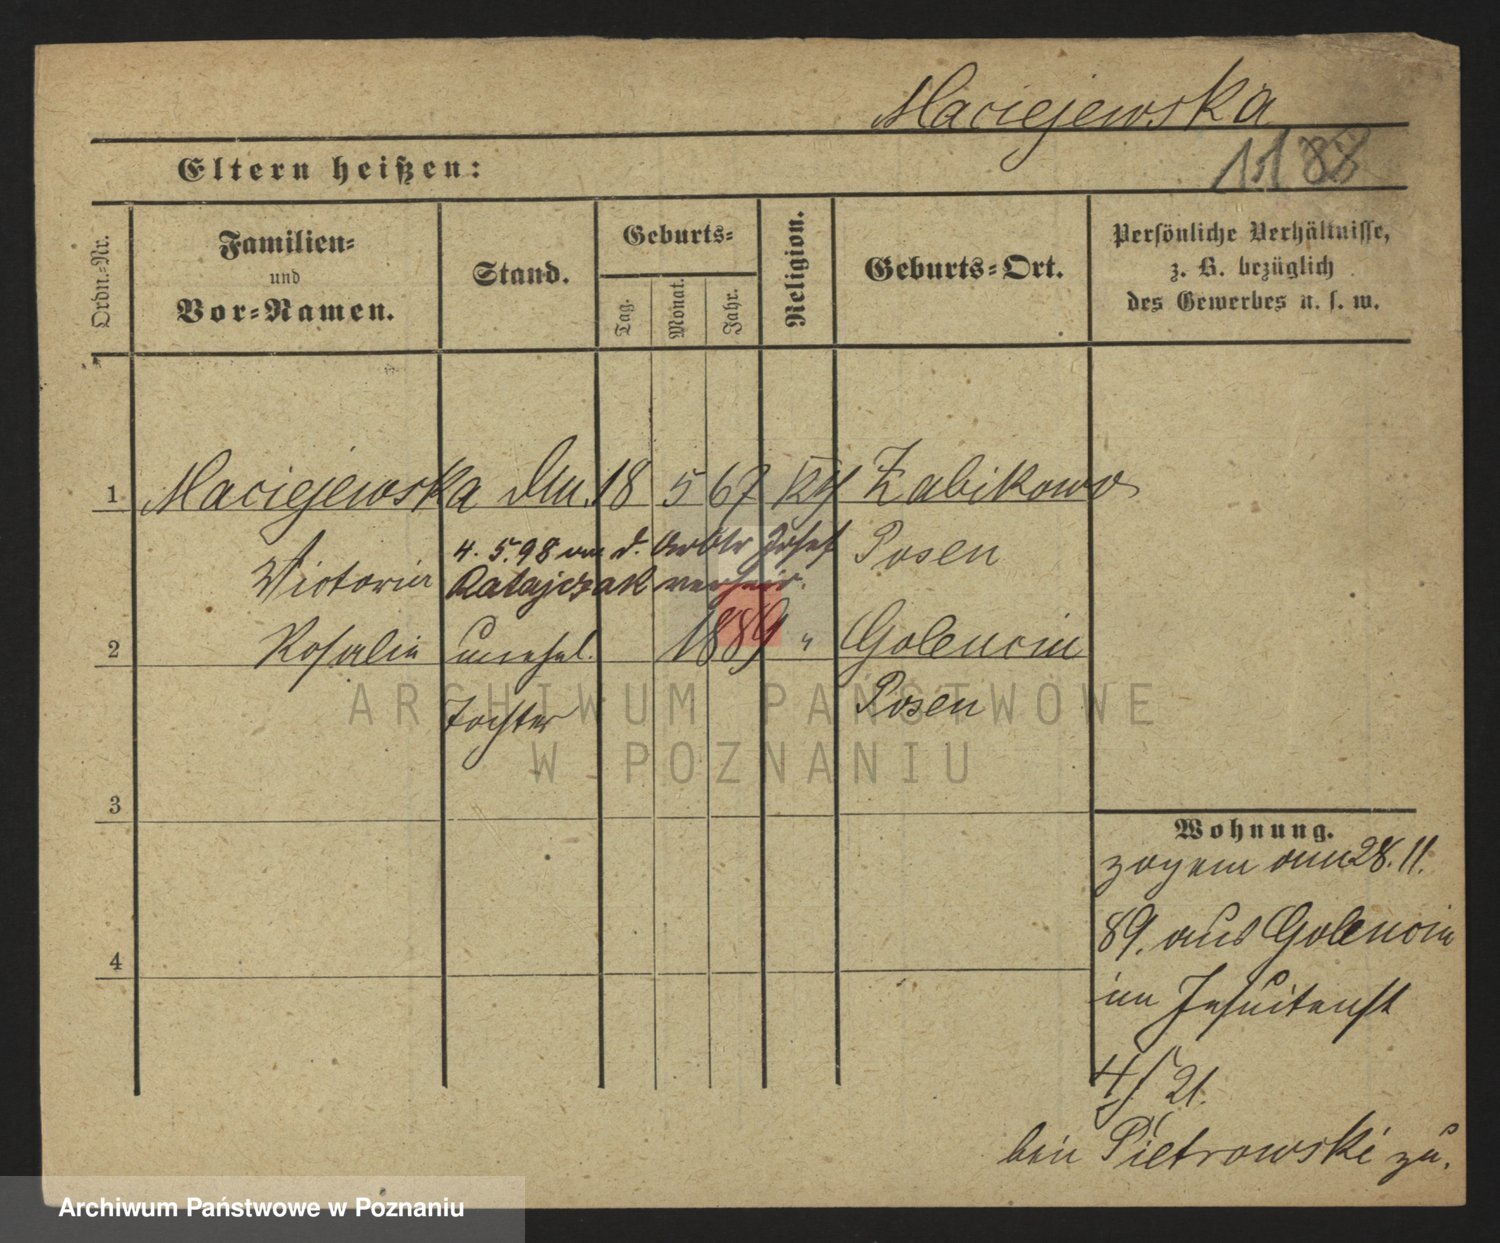 Maciejewska
Eltern heißen:
Ordn.-Nr.
Familien-
und
Vor-Namen.
Stand.
Geburts-
Tag.
Monat.
Jahr.
Religion.
Geburts-Ort.
Persönliche Verhältnisse,
z. B. bezüglich
des Gewerbes u. s. w.
1 Maciejewska 18 5 67 Zabikowo
Victoria 4. 5. 98 d. Josef Posen
Ratajczak verheir.
2 Rosalie unehel. 1889 " Golencin
Tochter Posen
3
4
Wohnung.
zogen am 28. 11.
89. aus Golencin
in Jesuitenst
4/5 21.
bei Pietrowski zu.
ARCHIWUM PAŃSTWOWE
W POZNANIU
Archiwum Państwowe w Poznaniu